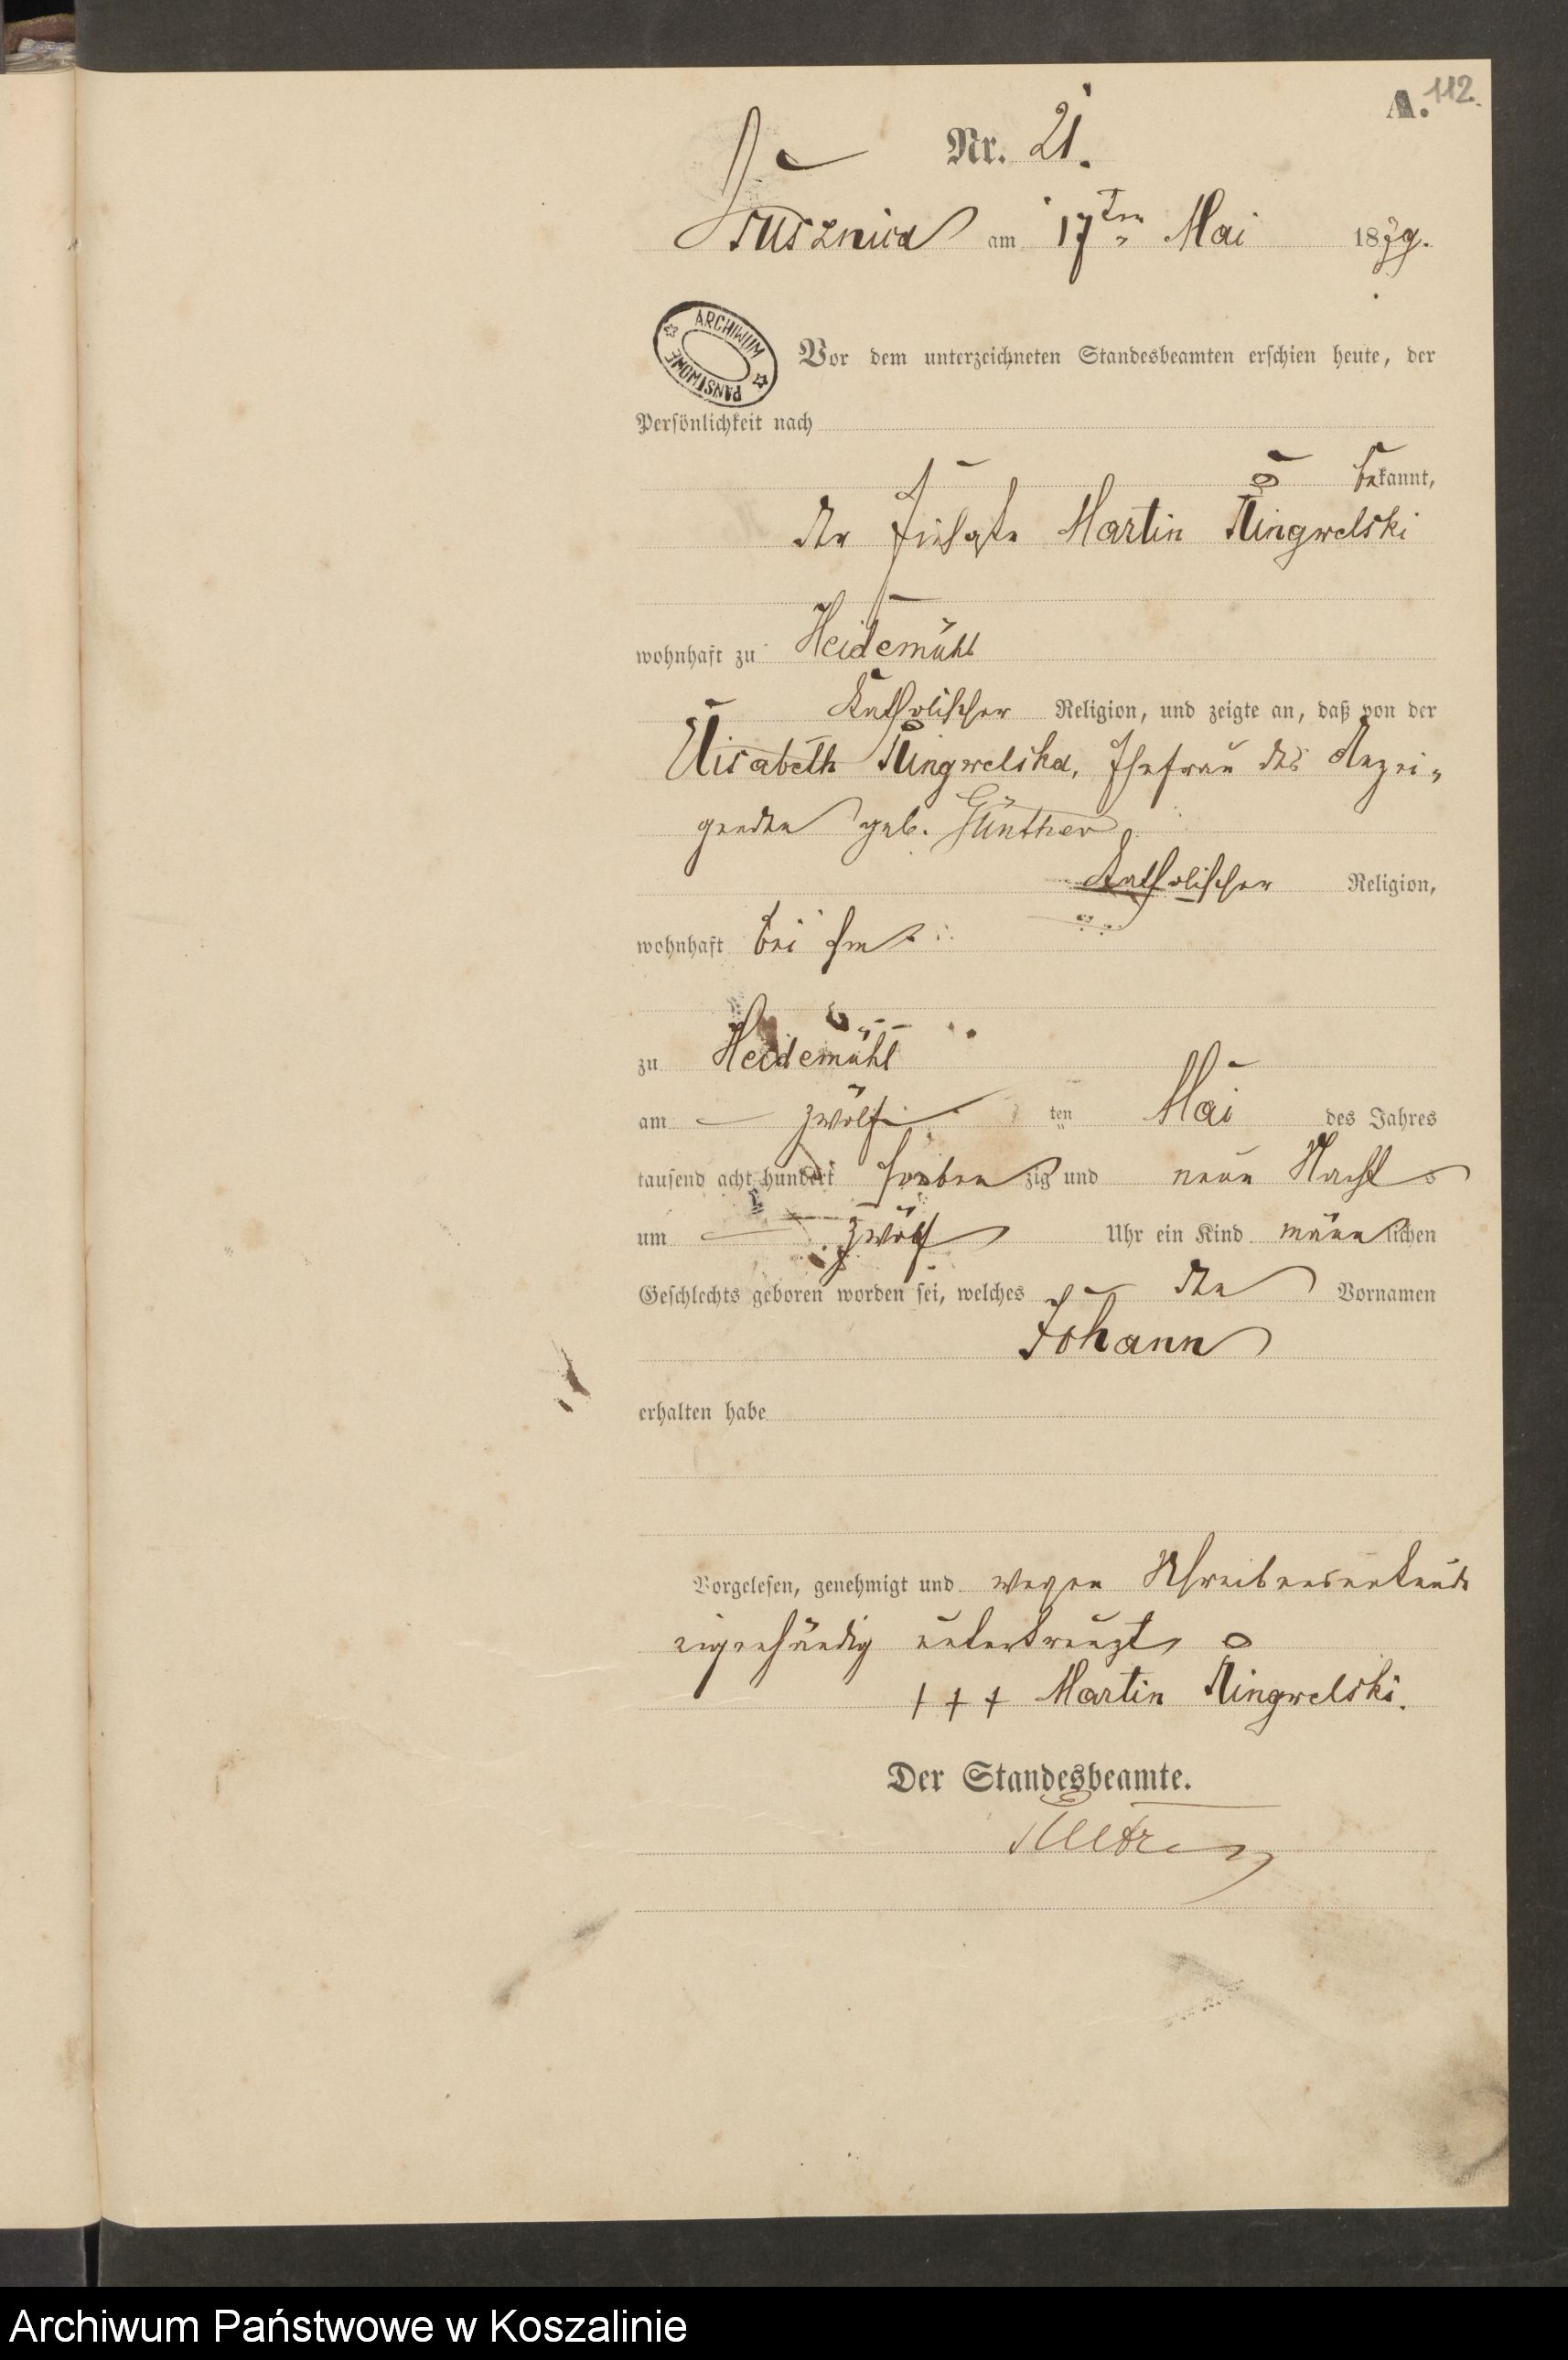 A. 112.
Nr. 21.
am 17ten Mai 1879.
ARCHIWUM PAŃSTWOWE
Vor dem unterzeichneten Standesbeamten erschien heute, der
Persönlichkeit nach
bekannt,
der Martin Ringwelski
wohnhaft zu Heidemühl
Katholischer Religion, und zeigte an, daß von der
Elisabeth Ringwelska, Ehefrau des Anzei-
genden geb. Günther
Katholischer Religion,
wohnhaft bei ihm
zu Heidemühl
am zwölf ten Mai des Jahres
tausend acht hundert sieben zig und neun Nachts
um zwölf Uhr ein Kind männ lichen
Geschlechts geboren worden sei, welches den Vornamen
Johann
erhalten habe
Vorgelesen, genehmigt und wegen Schreibensunkunde
eigenhändig unterkreuzt
+++ Martin Ringwelski.
Der Standesbeamte.
Archiwum Państwowe w Koszalinie